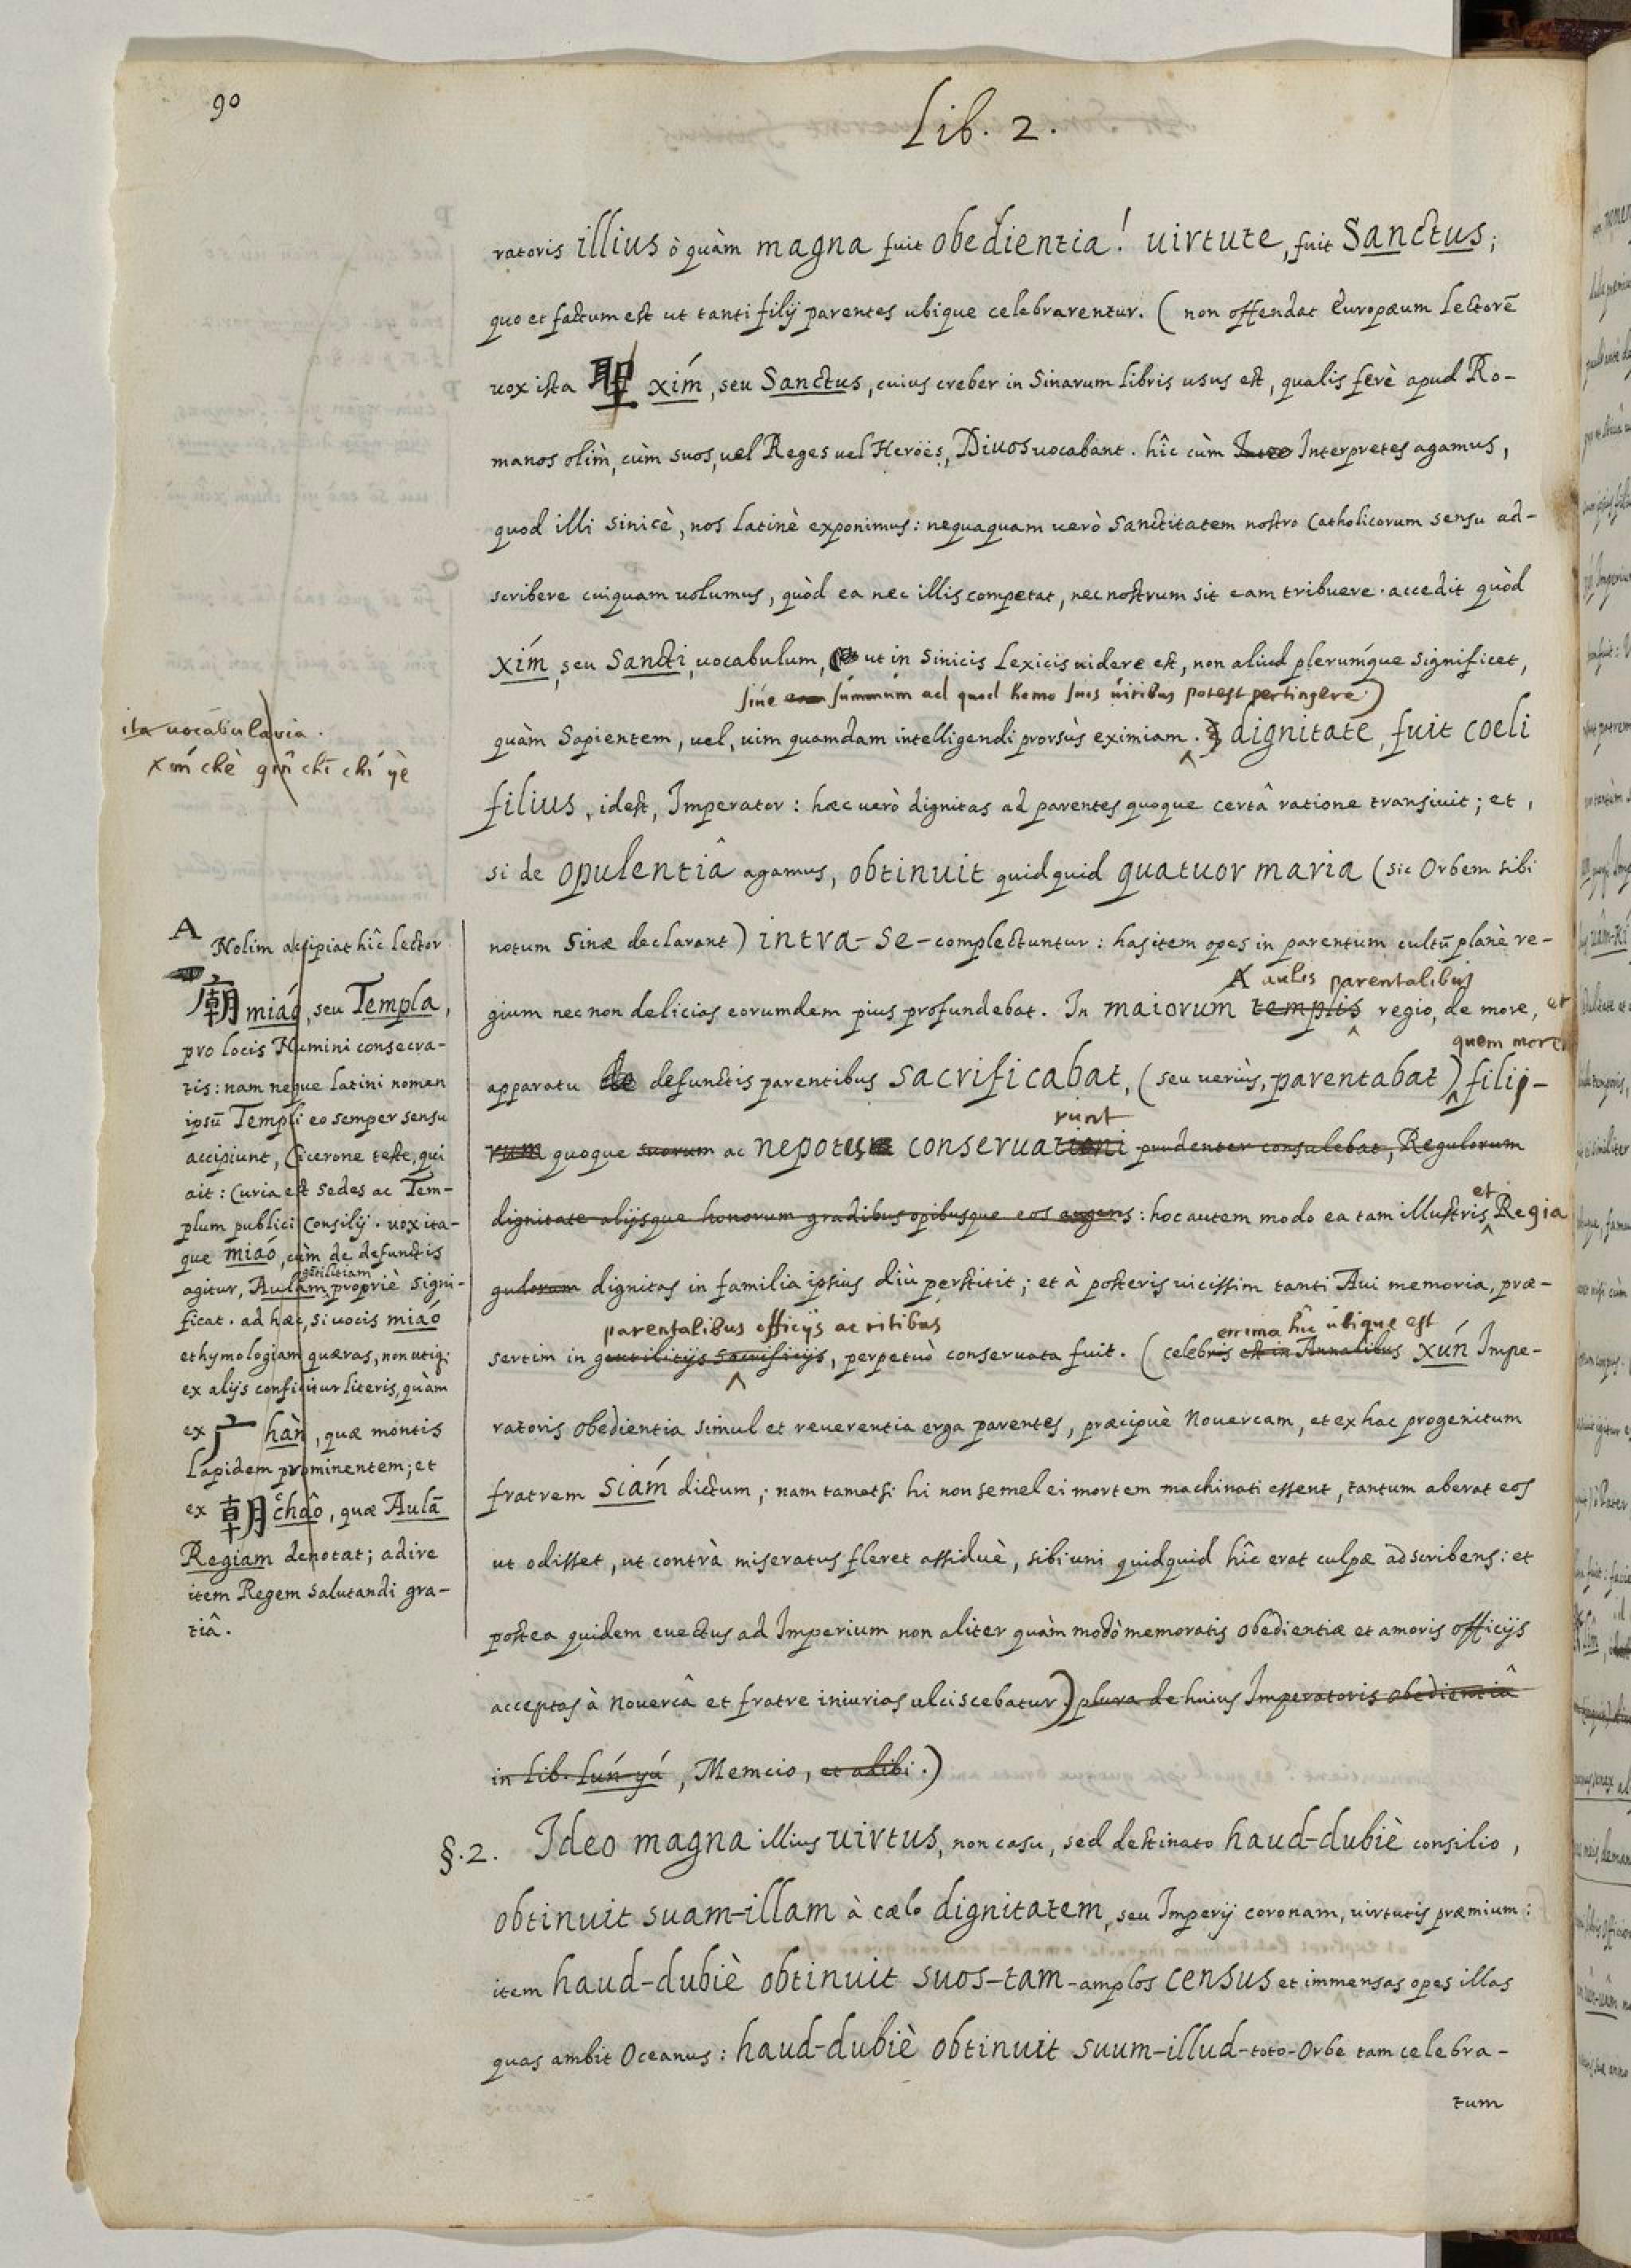 90
Lib. 2.
ratoris illius ò quàm magna fuit obedientia! uirtute, fuit Sanctus;
quo et factum est ut tanti filij parentes ubique celebrarentur. ( non offendat Europæum Lectorē
uox ista 聖 xím, seu Sanctus, cuius creber in Sinarum libris usus est, qualis ferè apud Ro-
manos olim, cùm suos, uel Reges uel Heröes, Diuos uocabant. hîc cùm Interpretes agamus,
quod illi sinicè, nos latinè exponimus: nequaquam uerò sanctitatem nostro Catholicorum sensu ad-
scribere cuiquam uolumus, quòd ea nec illis competat, nec nostrum sit eam tribuere. accedit quòd
xím, seu Sancti, uocabulum, ut in Sinicis Lexicis uidere est, non aliud plerumque significet,
siue summum ad quod homo suis uiribus potest pertingere.)
quàm Sapientem, uel, uim quamdam intelligendi prorsùs eximiam. dignitate, fuit coeli
ita vocabularia.
xím chè gîn chī chí yè
filius, idest, Imperator: hæc uerò dignitas ad parentes quoque certâ ratione transiuit; et,
si de opulentiâ agamus, obtinuit quidquid quatuor maria (sic Orbem sibi
notum Sinæ declarant) intra-se-complectuntur: has item opes in parentum cultū planè re-
A aulis parentalibus
gium nec non delicias eorumdem pius profundebat. In maiorum templis regio, de more, et
quem
apparatu de defunctis parentibus sacrificabat, (seu uerius, parentabat) filij-
runt
rum quoque suorum ac nepotum conseruationi prudenter consulebat, Regulorum
et
dignitate alijsque honorum gradibus opibusque eos augens: hoc autem modo ea tam illustris Regia
gulorum dignitas in familia ipsius diù perstitit; et à posteris uicissim tanti Aui memoria, præ-
parentalibus officijs ac ritibus
enima hîc ubique est
sertim in gentilitijs sacrificijs, perpetuò conseruata fuit. (celebris est in Annalibus xún Impe-
ratoris obedientia simul et reuerentia erga parentes, præcipuè Nouercam, et ex hac progenitum
fratrem siám dictum; nam tametsi hi non semel ei mortem machinati essent, tantum aberat eos
ut odisset, ut contrà miseratus fleret assiduè, sibi uni quidquid hîc erat culpæ adscribens: et
postea quidem euectus ad Imperium non aliter quàm modò memoratis obedientiæ et amoris officijs
acceptas à Nouercâ et fratre iniurias ulciscebatur) plura de huius Imperatoris obedientiâ
in Lib. Lún-yú, Memcio, et alibi.)
A
Nolim accipiat hîc lector
廟 miáo, seu Templa,
pro locis Numini consecra-
tis: nam neque latini nomen
ipsū Templi eo semper sensu
accipiunt, Cicerone teste, qui
ait: Curia est sedes ac Tem-
plum publici Consilij. uox ita-
que miaó, cùm de defunctis
gētilitiam
agitur, Aulam propriè signi-
ficat. ad hæc, si uocis miaó
ethymologiam quæras, non utiq;
ex alijs conficitur literis, quàm
ex 广 hàn, quæ montis
lapidem prominentem; et
ex 朝 chaô, quæ Aulā
Regiam denotat; adire
item Regem salutandi gra-
tiâ.
§.2. Ideo magna illius uirtus, non casu, sed destinato haud-dubiè consilio,
obtinuit suam-illam à cælo dignitatem, seu Imperij coronam, uirtutis præmium:
item haud-dubiè obtinuit suos-tam-amplos census et immensas opes illas
quas ambit Oceanus: haud-dubiè obtinuit suum-illud-toto-Orbe tam celebra-
tum